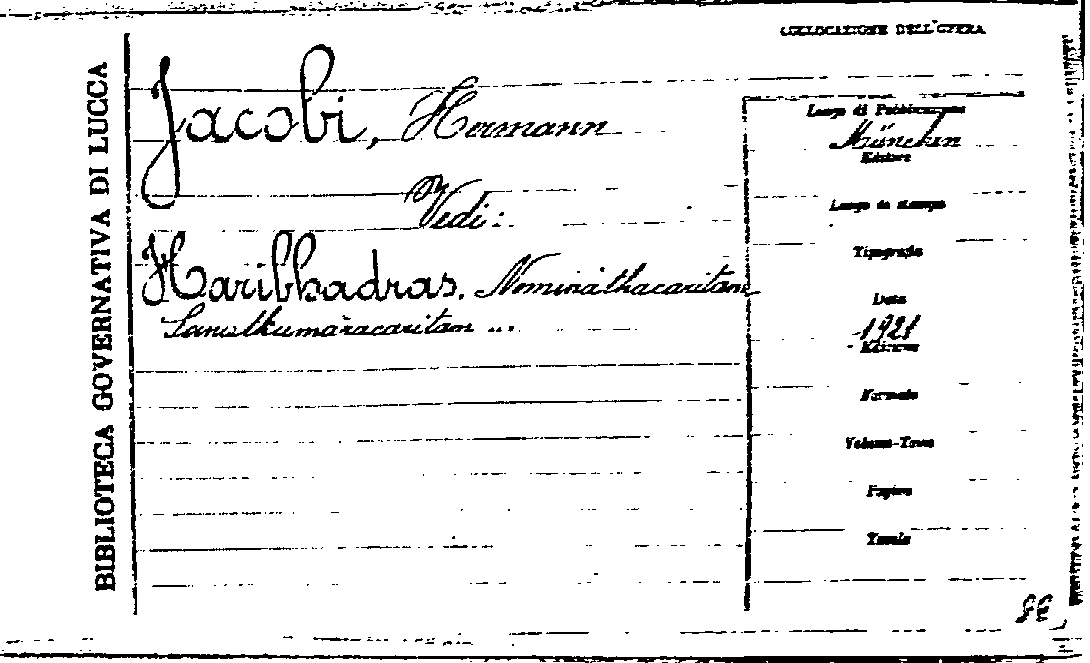 BIBLIOTECA GOVERNATIVA DI LUCCA
COLLOCAZIONE DELL'OPERA
Jacobi, Hermann
Vedi:
Haribhadras. Neminathacaritam
Sanatkumāracaritam ...
Luogo di Pubblicazione
München
Editore
Luogo di stampa
Tipografia
Data
1921
Edizione
Formato
Volume-Tomo
Pagine
Tavole